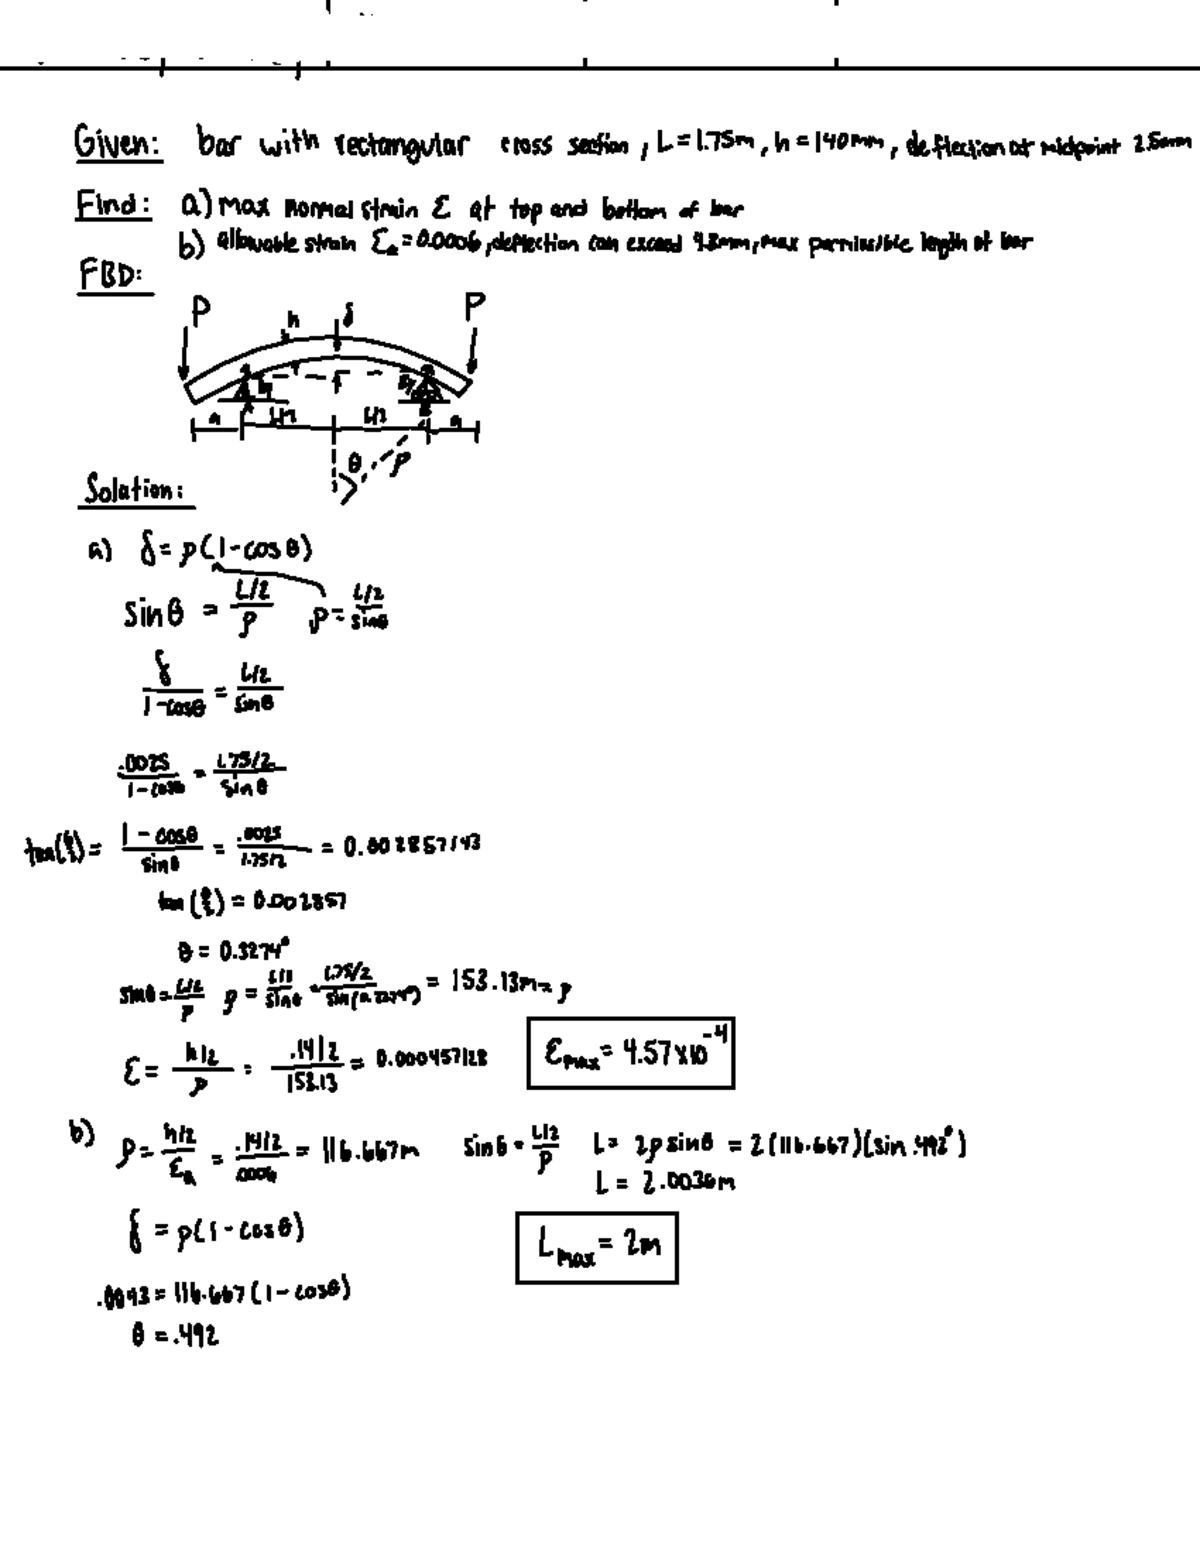 Given: bar with rectangular cross section, L=1.75m, h=140mm, deflection at midpoint 2.5mm
Find: a) max normal strain ε at top and bottom of bar
b) allowable strain εₐ=0.0006, deflection can exceed 4.3mm, max permissible length of bar
FBD:
P P
h δ
a L/2 L/2 a
θ ρ
Solation:
a) δ=ρ(1-cosθ)
sinθ = (L/2)/ρ ρ=(L/2)/sinθ
δ/(1-cosθ) = (L/2)/sinθ
.0025/(1-cosθ) = (1.75/2)/sinθ
tan(θ/2) = (1-cosθ)/sinθ = .0025/(1.75/2) = 0.002857143
tan(θ/2) = 0.002857
θ = 0.3274°
sinθ=(L/2)/ρ ρ=(L/2)/sinθ = (1.75/2)/sin(0.3274°) = 153.13m=ρ
ε = (h/2)/ρ = (.14/2)/153.13 = 0.000457128 εmax = 4.57x10⁻⁴
b) ρ=(h/2)/εₐ = (.14/2)/.0006 = 116.667m sinθ = (L/2)/ρ L= 2ρsinθ = 2(116.667)(sin .492°)
L = 2.0036m
δ = ρ(1-cosθ) Lmax = 2m
.0043=116.667(1-cosθ)
θ =.492